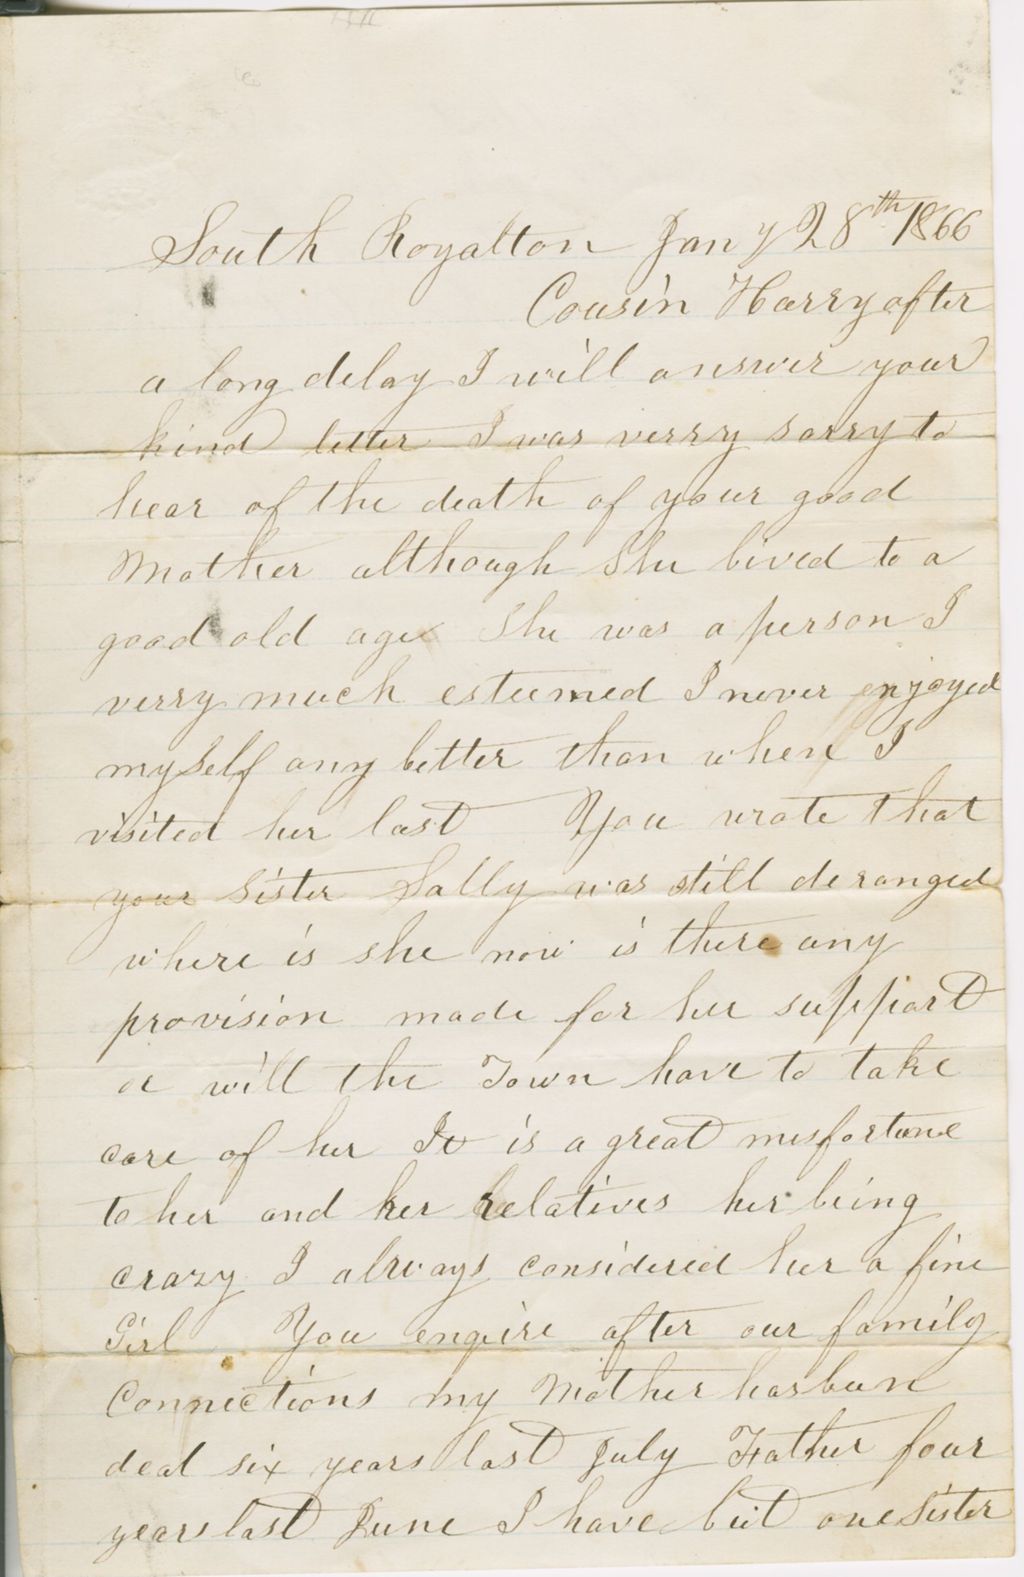 South Royalton Jany 28th 1866
Cousin Harry after
a long delay I will answer your
kind letter I was verry sorry to
hear of the death of your good
Mother although She lived to a
good old age She was a person I
verry much esteemed I never enjoyed
myself any better than when I
visited her last You wrote that
your Sister Sally was still deranged
where is she now is there any
provision made for her support
or will the Town have to take
care of her It is a great misfortune
to her and her relatives her being
crazy I always considered her a fine
Girl You enquire after our family
Connections my Mother has been
dead six years last July Father four
years last June I have but one Sister